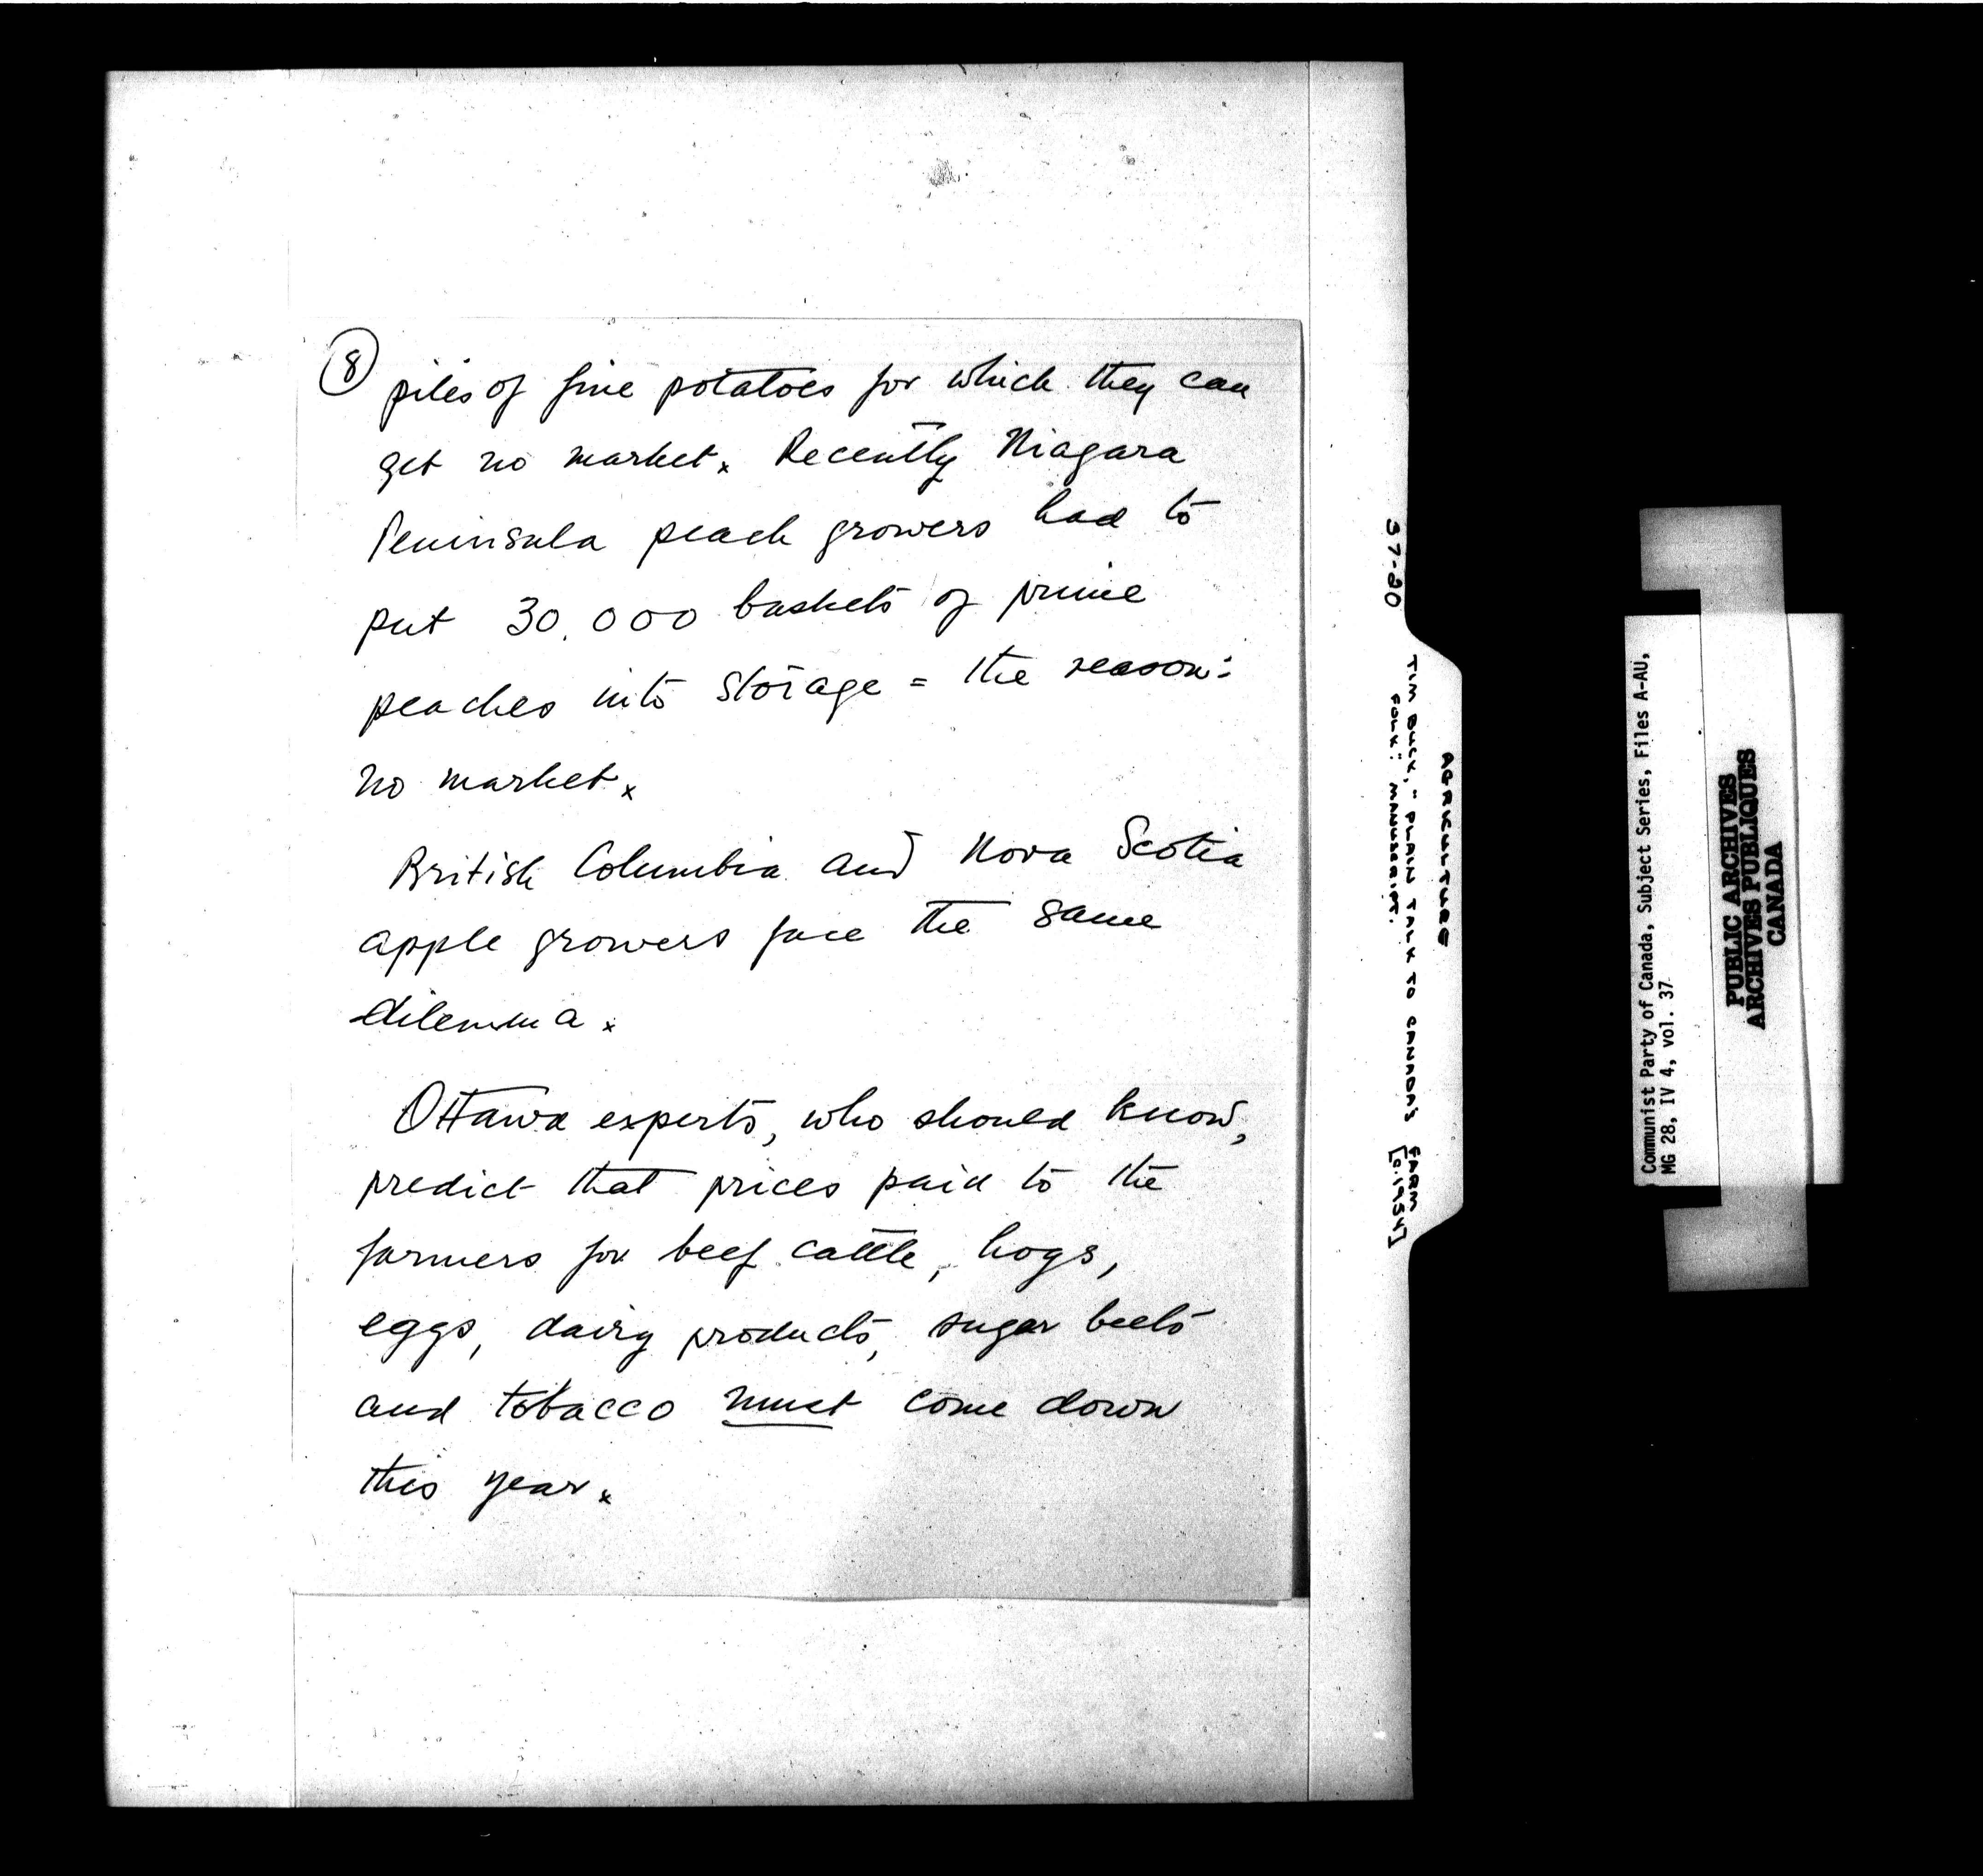 8
piles of fine potatoes for which they can
get no market x Recently Niagara
Peninsula peach growers had to
put 30,000 baskets of prime
peaches into storage = the reason:
no market x
British Columbia and Nova Scotia
apple growers face the same
dilemma x
Ottawa experts, who should know,
predict that prices paid to the
farmers for beef cattle, hogs,
eggs, dairy products, sugar beets
and tobacco must come down
this year x
37-20
AGRICULTURE
TIM BUCK, "PLAIN TALK TO CANADA'S FARM
FOLK": MANUSCRIPT. [c.1954]
Communist Party of Canada, Subject Series, Files A-AU,
MG 28, IV 4, vol. 37
PUBLIC ARCHIVES
ARCHIVES PUBLIQUES
CANADA